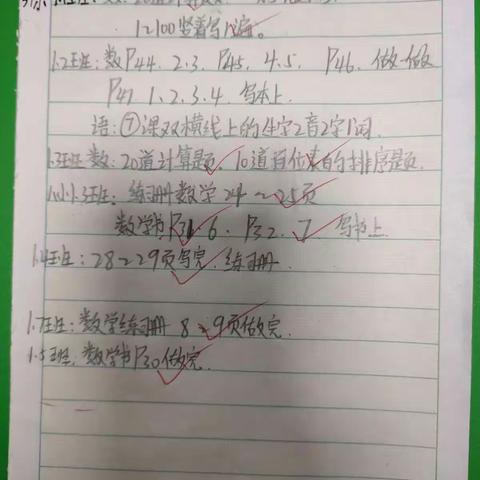 1~100竖着写1遍。
1.2班:数P44. 2.3. P45. 4.5. P46. 做一做
P47 1.2.3.4. 写本上.
语:⑦课双横线上的4字2音2字1词.
1.3班数:20道计算题. 10道百位表的排序题.
1.3班:练习册数学24~25页
数学书P31. 6. P32. 7. 写书上
1.4班:28~29页写完. 练习册.
1.7班:数学练习册 8~9页做完.
1.5班. 数学书P30做完.